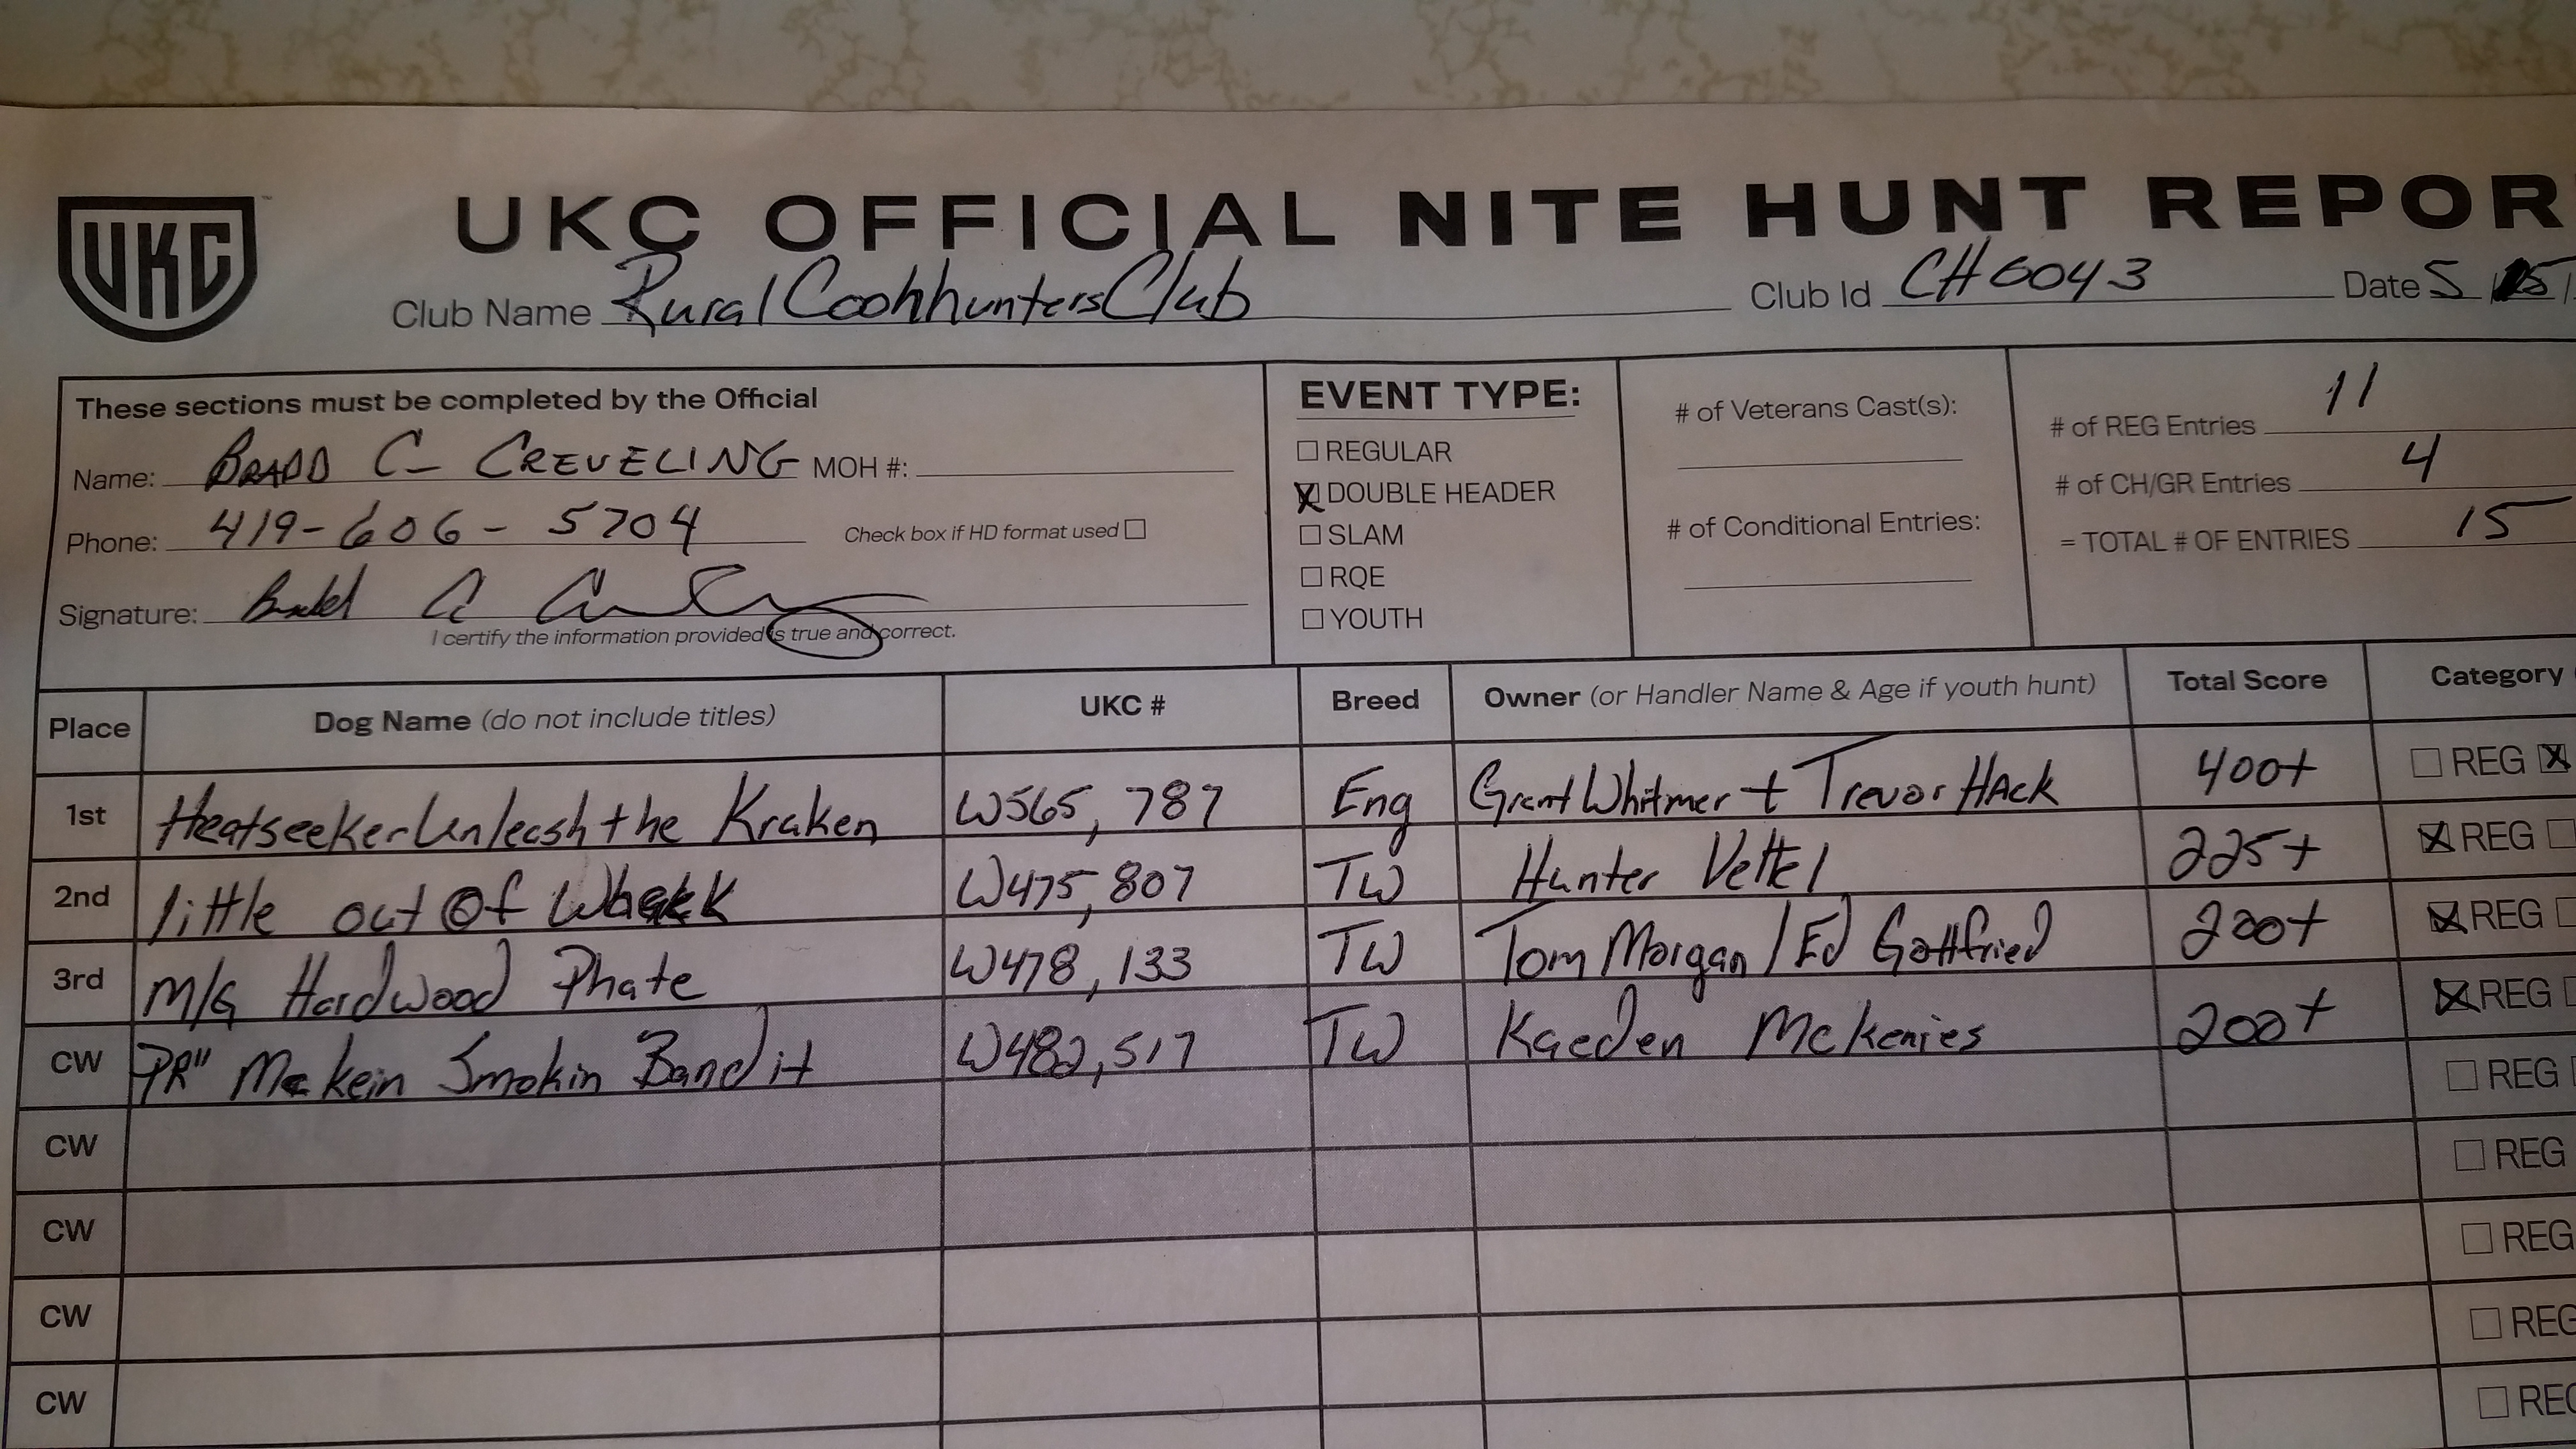 UKC
UKC OFFICIAL NITE HUNT REPOR
Club Name Rural CoohhuntersClub Club Id CH6043 Date 5
These sections must be completed by the Official
Name: BRADD C- CREVELING MOH #:
Phone: 419-606-5704 Check box if HD format used
Signature:
I certify the information provided is true and correct.
EVENT TYPE:
REGULAR
X DOUBLE HEADER
SLAM
RQE
YOUTH
# of Veterans Cast(s):
# of Conditional Entries:
# of REG Entries 11
# of CH/GR Entries 4
= TOTAL # OF ENTRIES 15
Place Dog Name (do not include titles) UKC # Breed Owner (or Handler Name & Age if youth hunt) Total Score Category
1st Heatseeker Unleash the Kraken W565,787 Eng Grant Whitmer + Trevor HAck 400+ REG X
2nd little out Of Whack W475,807 TW Hunter Vettel 225+ X REG
3rd M/G Hardwood Phate W478,133 TW Tom Morgan / Ed Gottfried 200+ X REG
CW "PR" Mckein Smokin Bandit W482,517 TW Kaeden Mckenies 200+ X REG
REG
CW REG
CW REG
CW REG
CW REG